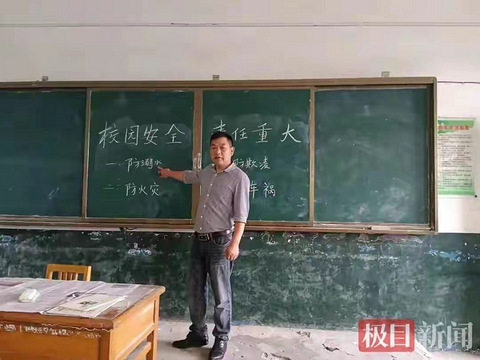 校园安全 责任重大
一、防溺水 防欺凌
二、防火灾 车祸
极目新闻